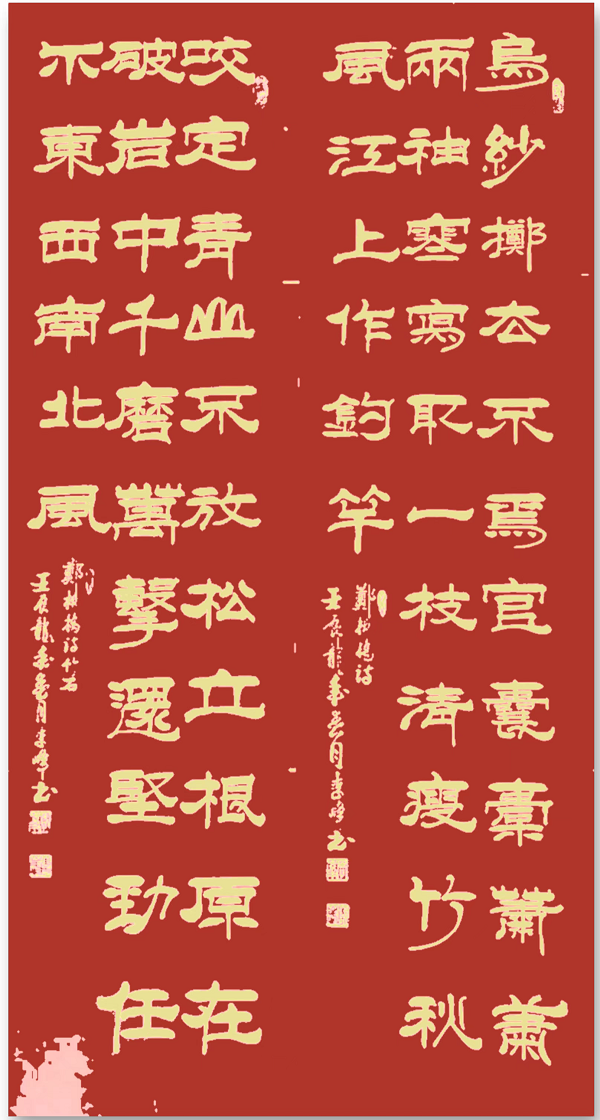 烏紗擲去不焉官囊橐蕭蕭
兩袖寒寫取一枝清瘦竹秋
風江上作釣竿
鄭板橋詩
壬辰龍春月李峰书
咬定青山不放松立根原在
破岩中千磨萬擊還堅勁任
尒東西南北風
鄭板橋詩竹石
壬辰龍春月李峰书